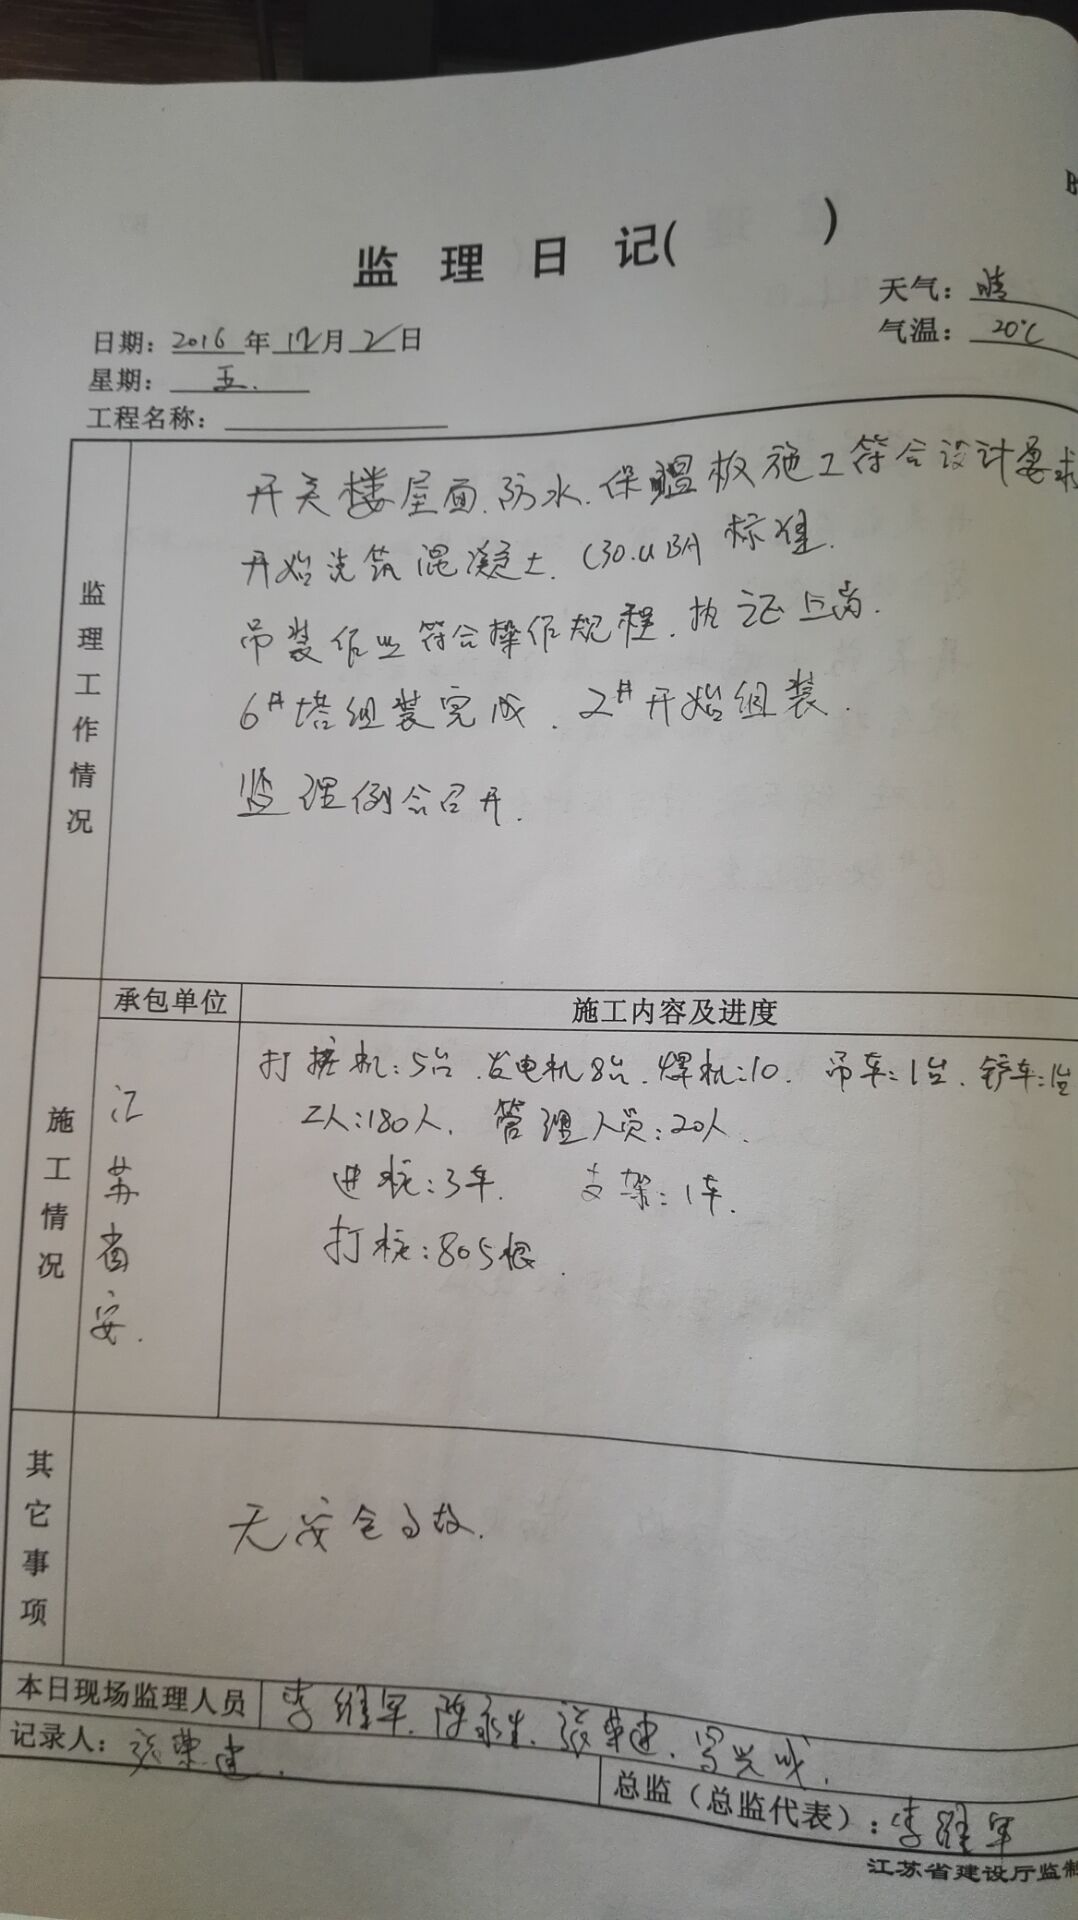 监理日记( )
天气：晴
日期：2016年12月2日
气温：20℃
星期：五.
工程名称：
监理工作情况
开关楼屋面.防水.保温板施工符合设计要求
开始浇筑混凝土. C30. 标准.
吊装作业符合操作规程.执证上岗.
6#塔组装完成. 2#开始组装.
监理例会召开.
施工情况
承包单位 施工内容及进度
江苏省安.
打桩机:5台.发电机8台.焊机:10. 吊车:1台.铲车:1台
工人:180人. 管理人员:20人.
进桩:3车. 支架:1车.
打桩:805根.
其它事项
无安全事故.
本日现场监理人员 李维军.陈永生.张荣建.
记录人：张荣建.
总监（总监代表）：李维军
江苏省建设厅监制